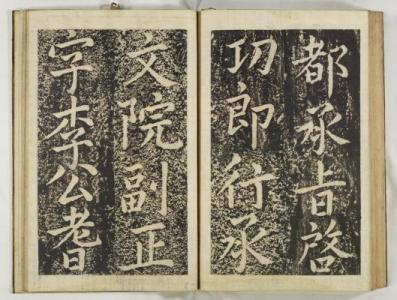 都承旨啓
功郎行承
文院副正
字李公耆